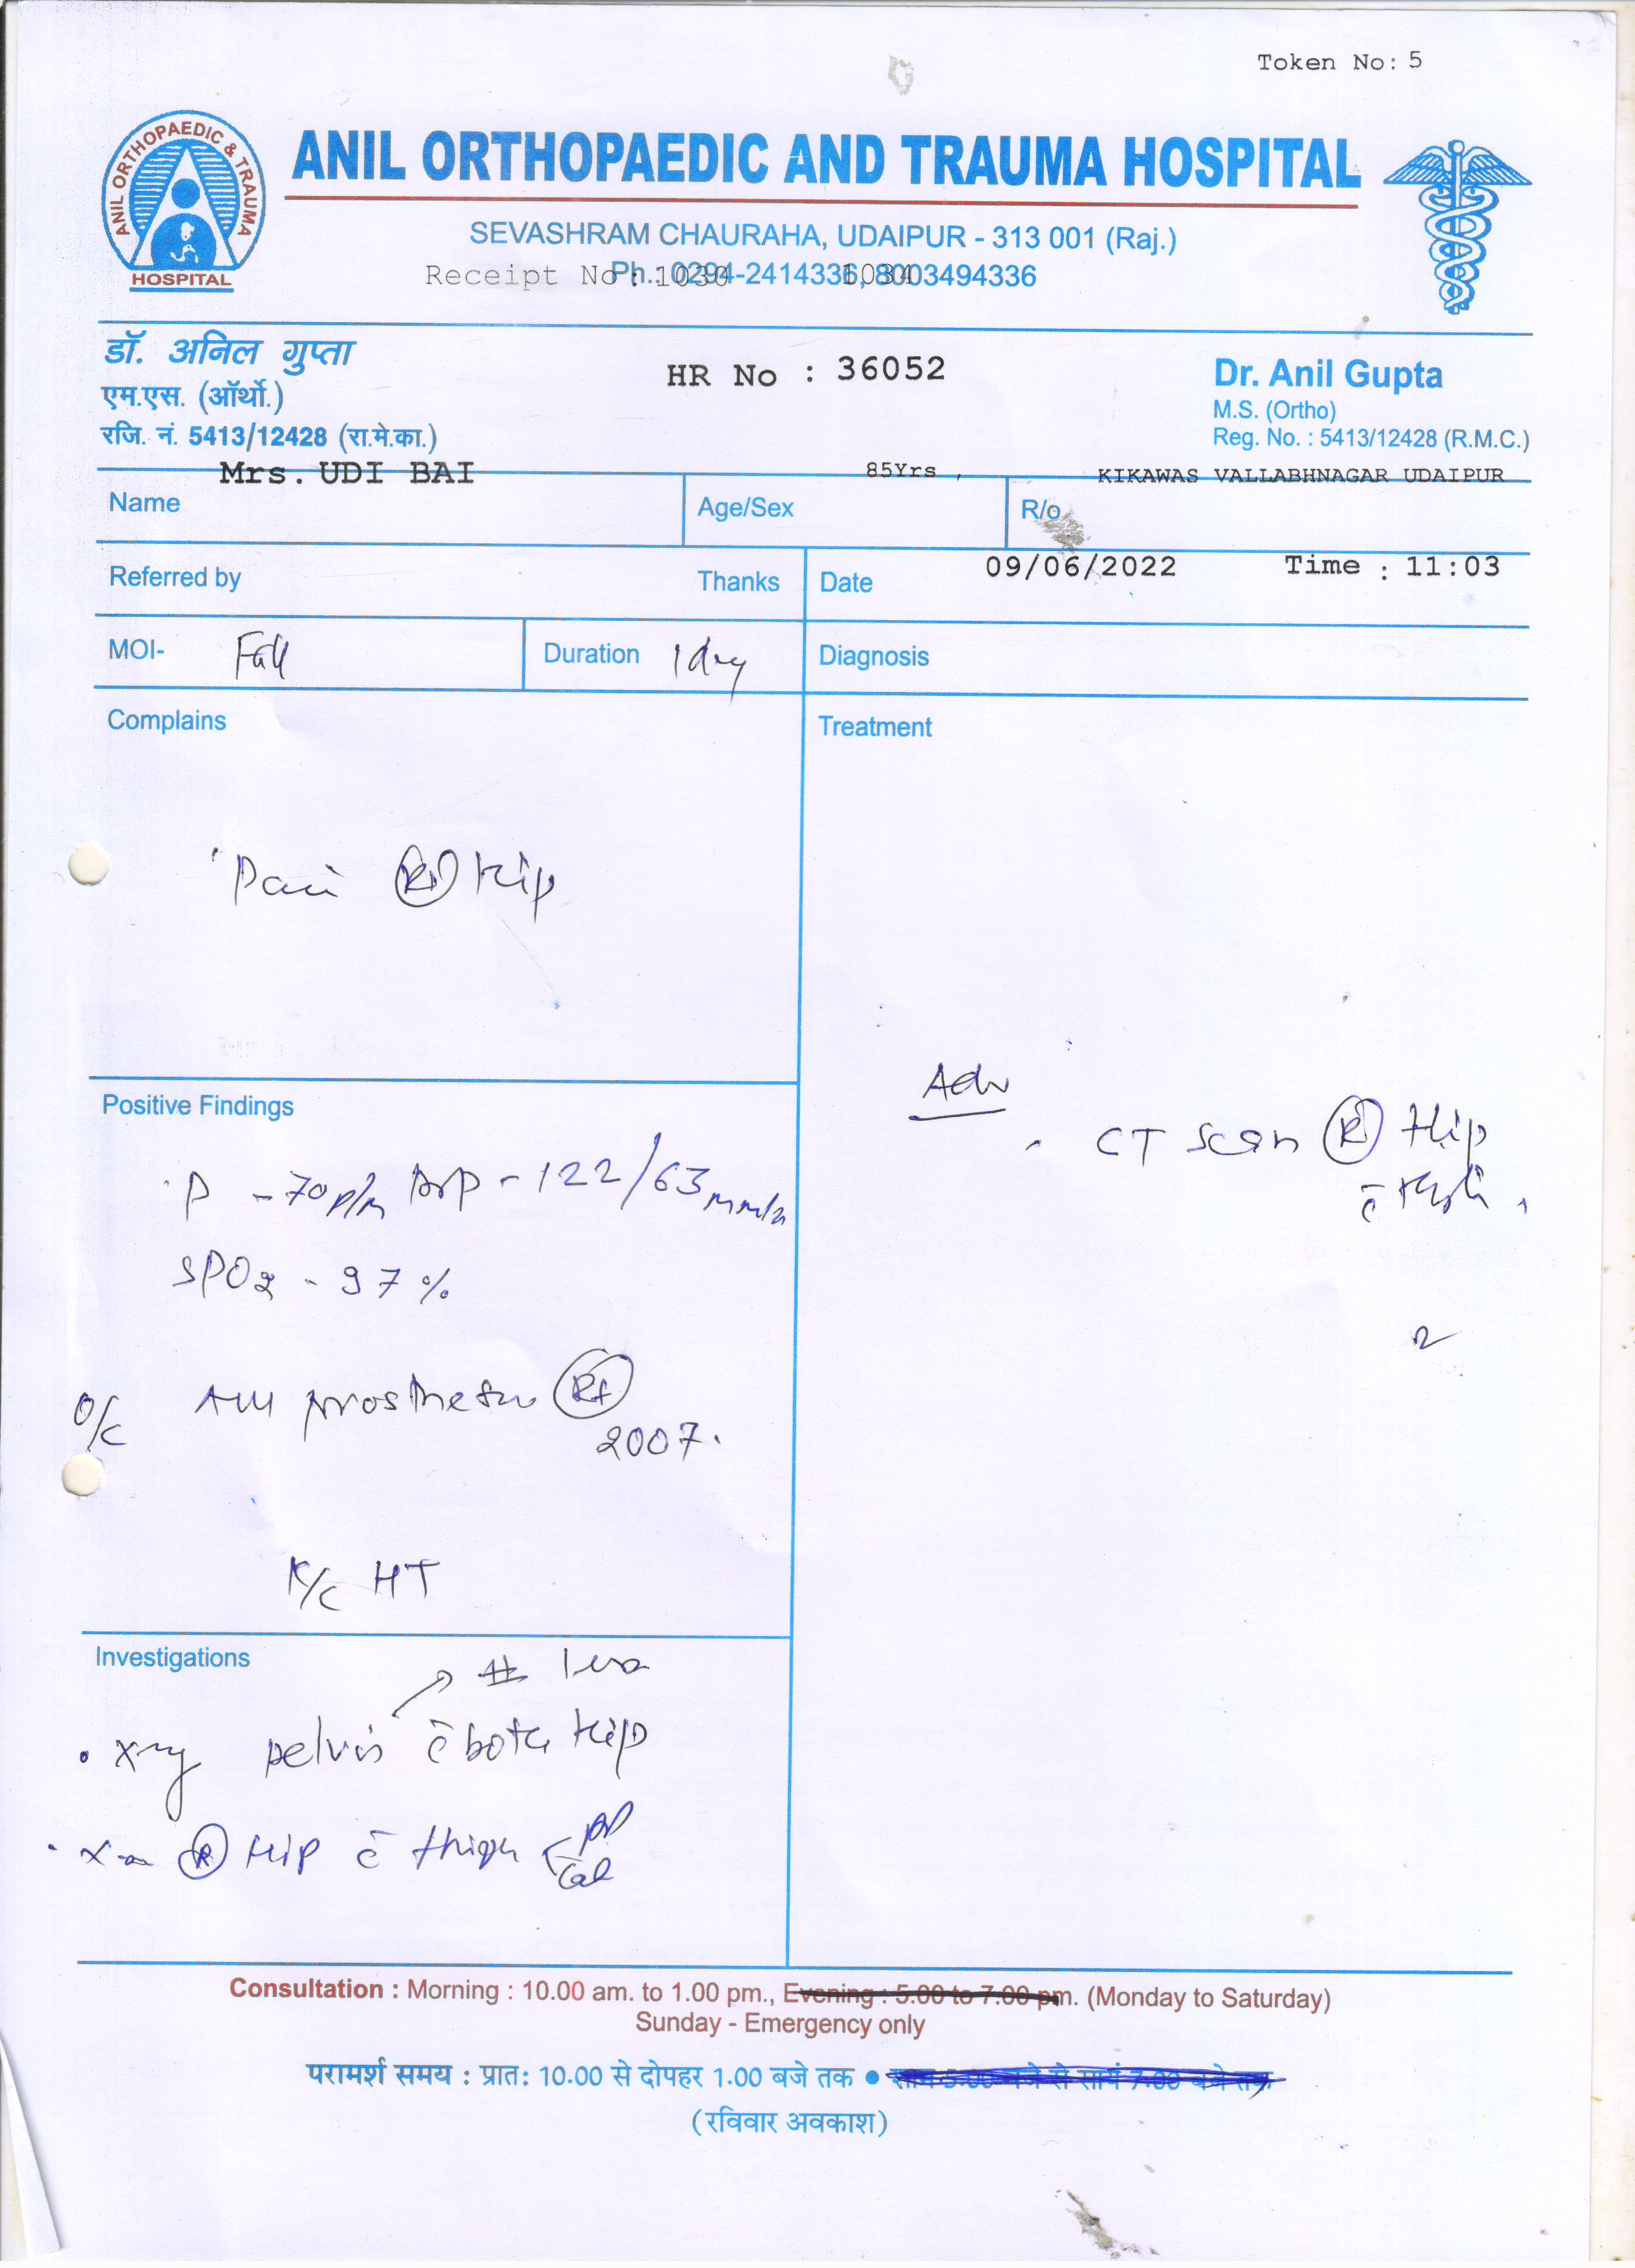 Token No: 5
ANIL ORTHOPAEDIC & TRAUMA
HOSPITAL
ANIL ORTHOPAEDIC AND TRAUMA HOSPITAL
SEVASHRAM CHAURAHA, UDAIPUR - 313 001 (Raj.)
Ph.: 0294-2414336, 8003494336
Receipt No : 1030 1034
डॉ. अनिल गुप्ता
एम.एस. (ऑर्थो.)
रजि. नं. 5413/12428 (रा.मे.का.)
HR No : 36052
Dr. Anil Gupta
M.S. (Ortho)
Reg. No. : 5413/12428 (R.M.C.)
Name Mrs. UDI BAI
Age/Sex 85Yrs ,
R/o KIKAWAS VALLABHNAGAR UDAIPUR
Referred by Thanks
Date 09/06/2022 Time : 11:03
MOI- Fall
Duration 1 day
Diagnosis
Complains
Pain Rt Hip
Treatment
Adv
CT Scan Rt Hip
Positive Findings
P - 70 p/m B/P - 122/63
SPO2 - 97 %
O/C prosthesis Rt
2007.
K/C HT
Investigations
#
xray pelvis c̄ both Hip
R Hip c̄ thigh
Consultation : Morning : 10.00 am. to 1.00 pm., Evening : 5.00 to 7.00 pm. (Monday to Saturday)
Sunday - Emergency only
परामर्श समय : प्रातः 10.00 से दोपहर 1.00 बजे तक ●
(रविवार अवकाश)